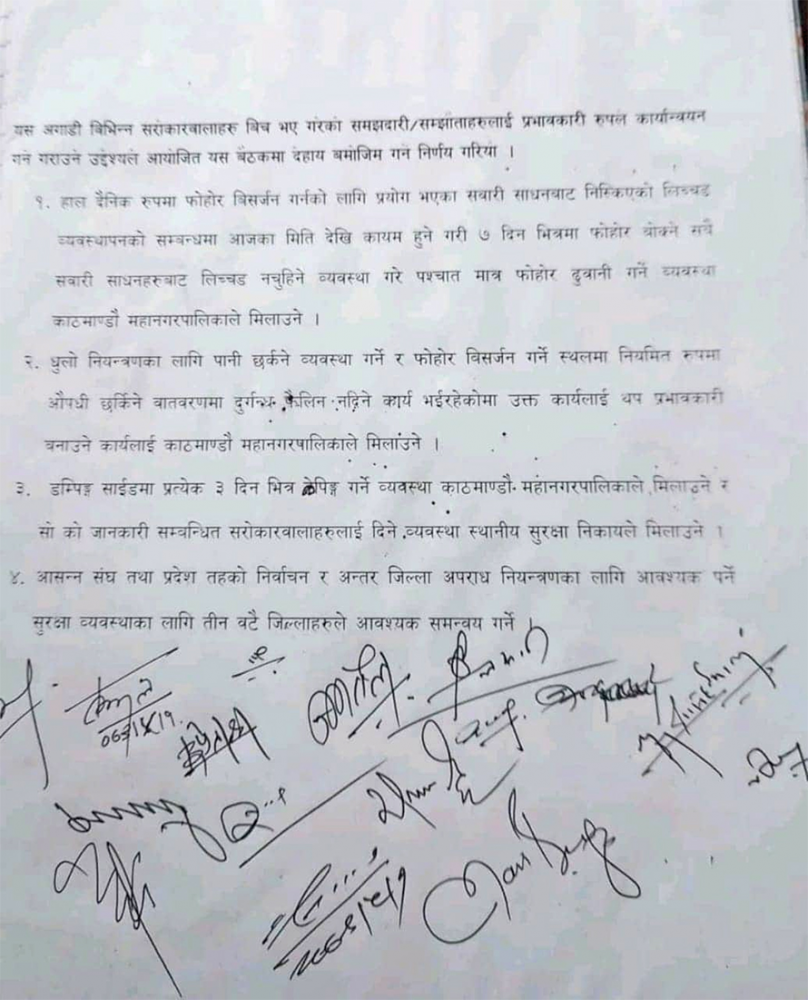 यस अगाडी विभिन्न सरोकारवालाहरु बिच भए गरेका समझदारी/सम्झौताहरुलाई प्रभावकारी रुपले कार्यान्वयन
गर्न गराउने उद्देश्यले आयोजित यस बैठकमा देहाय बमोजिम गर्ने निर्णय गरियो ।
१. हाल दैनिक रुपमा फोहोर बिसर्जन गर्नको लागि प्रयोग भएका सवारी साधनबाट निस्किएको लिच्चड
व्यवस्थापनको सम्बन्धमा आजका मिति देखि कायम हुने गरी ७ दिन भित्रमा फोहोर बोक्ने सबै
सवारी साधनहरुबाट लिच्चड नचुहिने व्यवस्था गरे पश्चात मात्र फोहोर ढुवानी गर्ने व्यवस्था
काठमाण्डौ महानगरपालिकाले मिलाउने ।
२. धुलो नियन्त्रणका लागि पानी छर्कने व्यवस्था गर्ने र फोहोर विसर्जन गर्ने स्थलमा नियमित रुपमा
औषधी छर्किने वातवरणमा दुर्गन्ध फैलिन नदिने कार्य भईरहेकोमा उक्त कार्यलाई थप प्रभावकारी
बनाउने कार्यलाई काठमाण्डौ महानगरपालिकाले मिलाउने ।
३. डम्पिङ्ग साईडमा प्रत्येक ३ दिन भित्र गर्ने व्यवस्था काठमाण्डौ महानगरपालिकाले मिलाउने र
सो को जानकारी सम्बन्धित सरोकारवालाहरुलाई दिने व्यवस्था स्थानीय सुरक्षा निकायले मिलाउने ।
४. आसन्न संघ तथा प्रदेश तहको निर्वाचन र अन्तर जिल्ला अपराध नियन्त्रणका लागि आवश्यक पर्ने
सुरक्षा व्यवस्थाका लागि तीन वटै जिल्लाहरुले आवश्यक समन्वय गर्ने ।